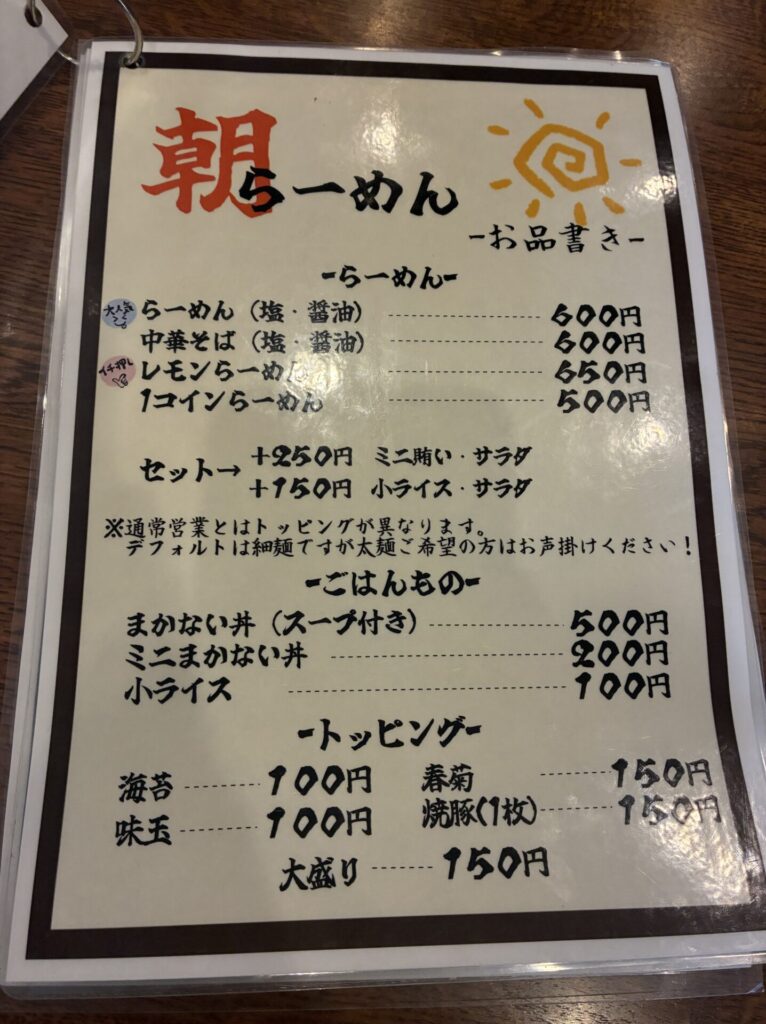 朝らーめん
-お品書き-
-らーめん-
大人気 らーめん（塩・醤油） 600円
中華そば（塩・醤油） 600円
イチ押し レモンらーめん 650円
1コインらーめん 500円
セット→ +250円 ミニ賄い・サラダ
+150円 小ライス・サラダ
※通常営業とはトッピングが異なります。
デフォルトは細麺ですが太麺ご希望の方はお声掛けください！
-ごはんもの-
まかない丼（スープ付き） 500円
ミニまかない丼 200円
小ライス 100円
-トッピング-
海苔 100円 春菊 150円
味玉 100円 焼豚(1枚) 150円
大盛り 150円